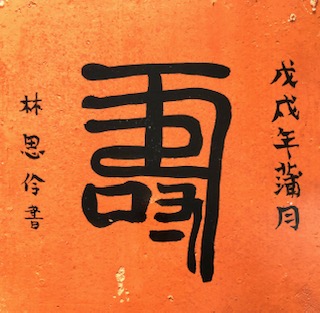 戊戌年蒲月
壽
林思伶書